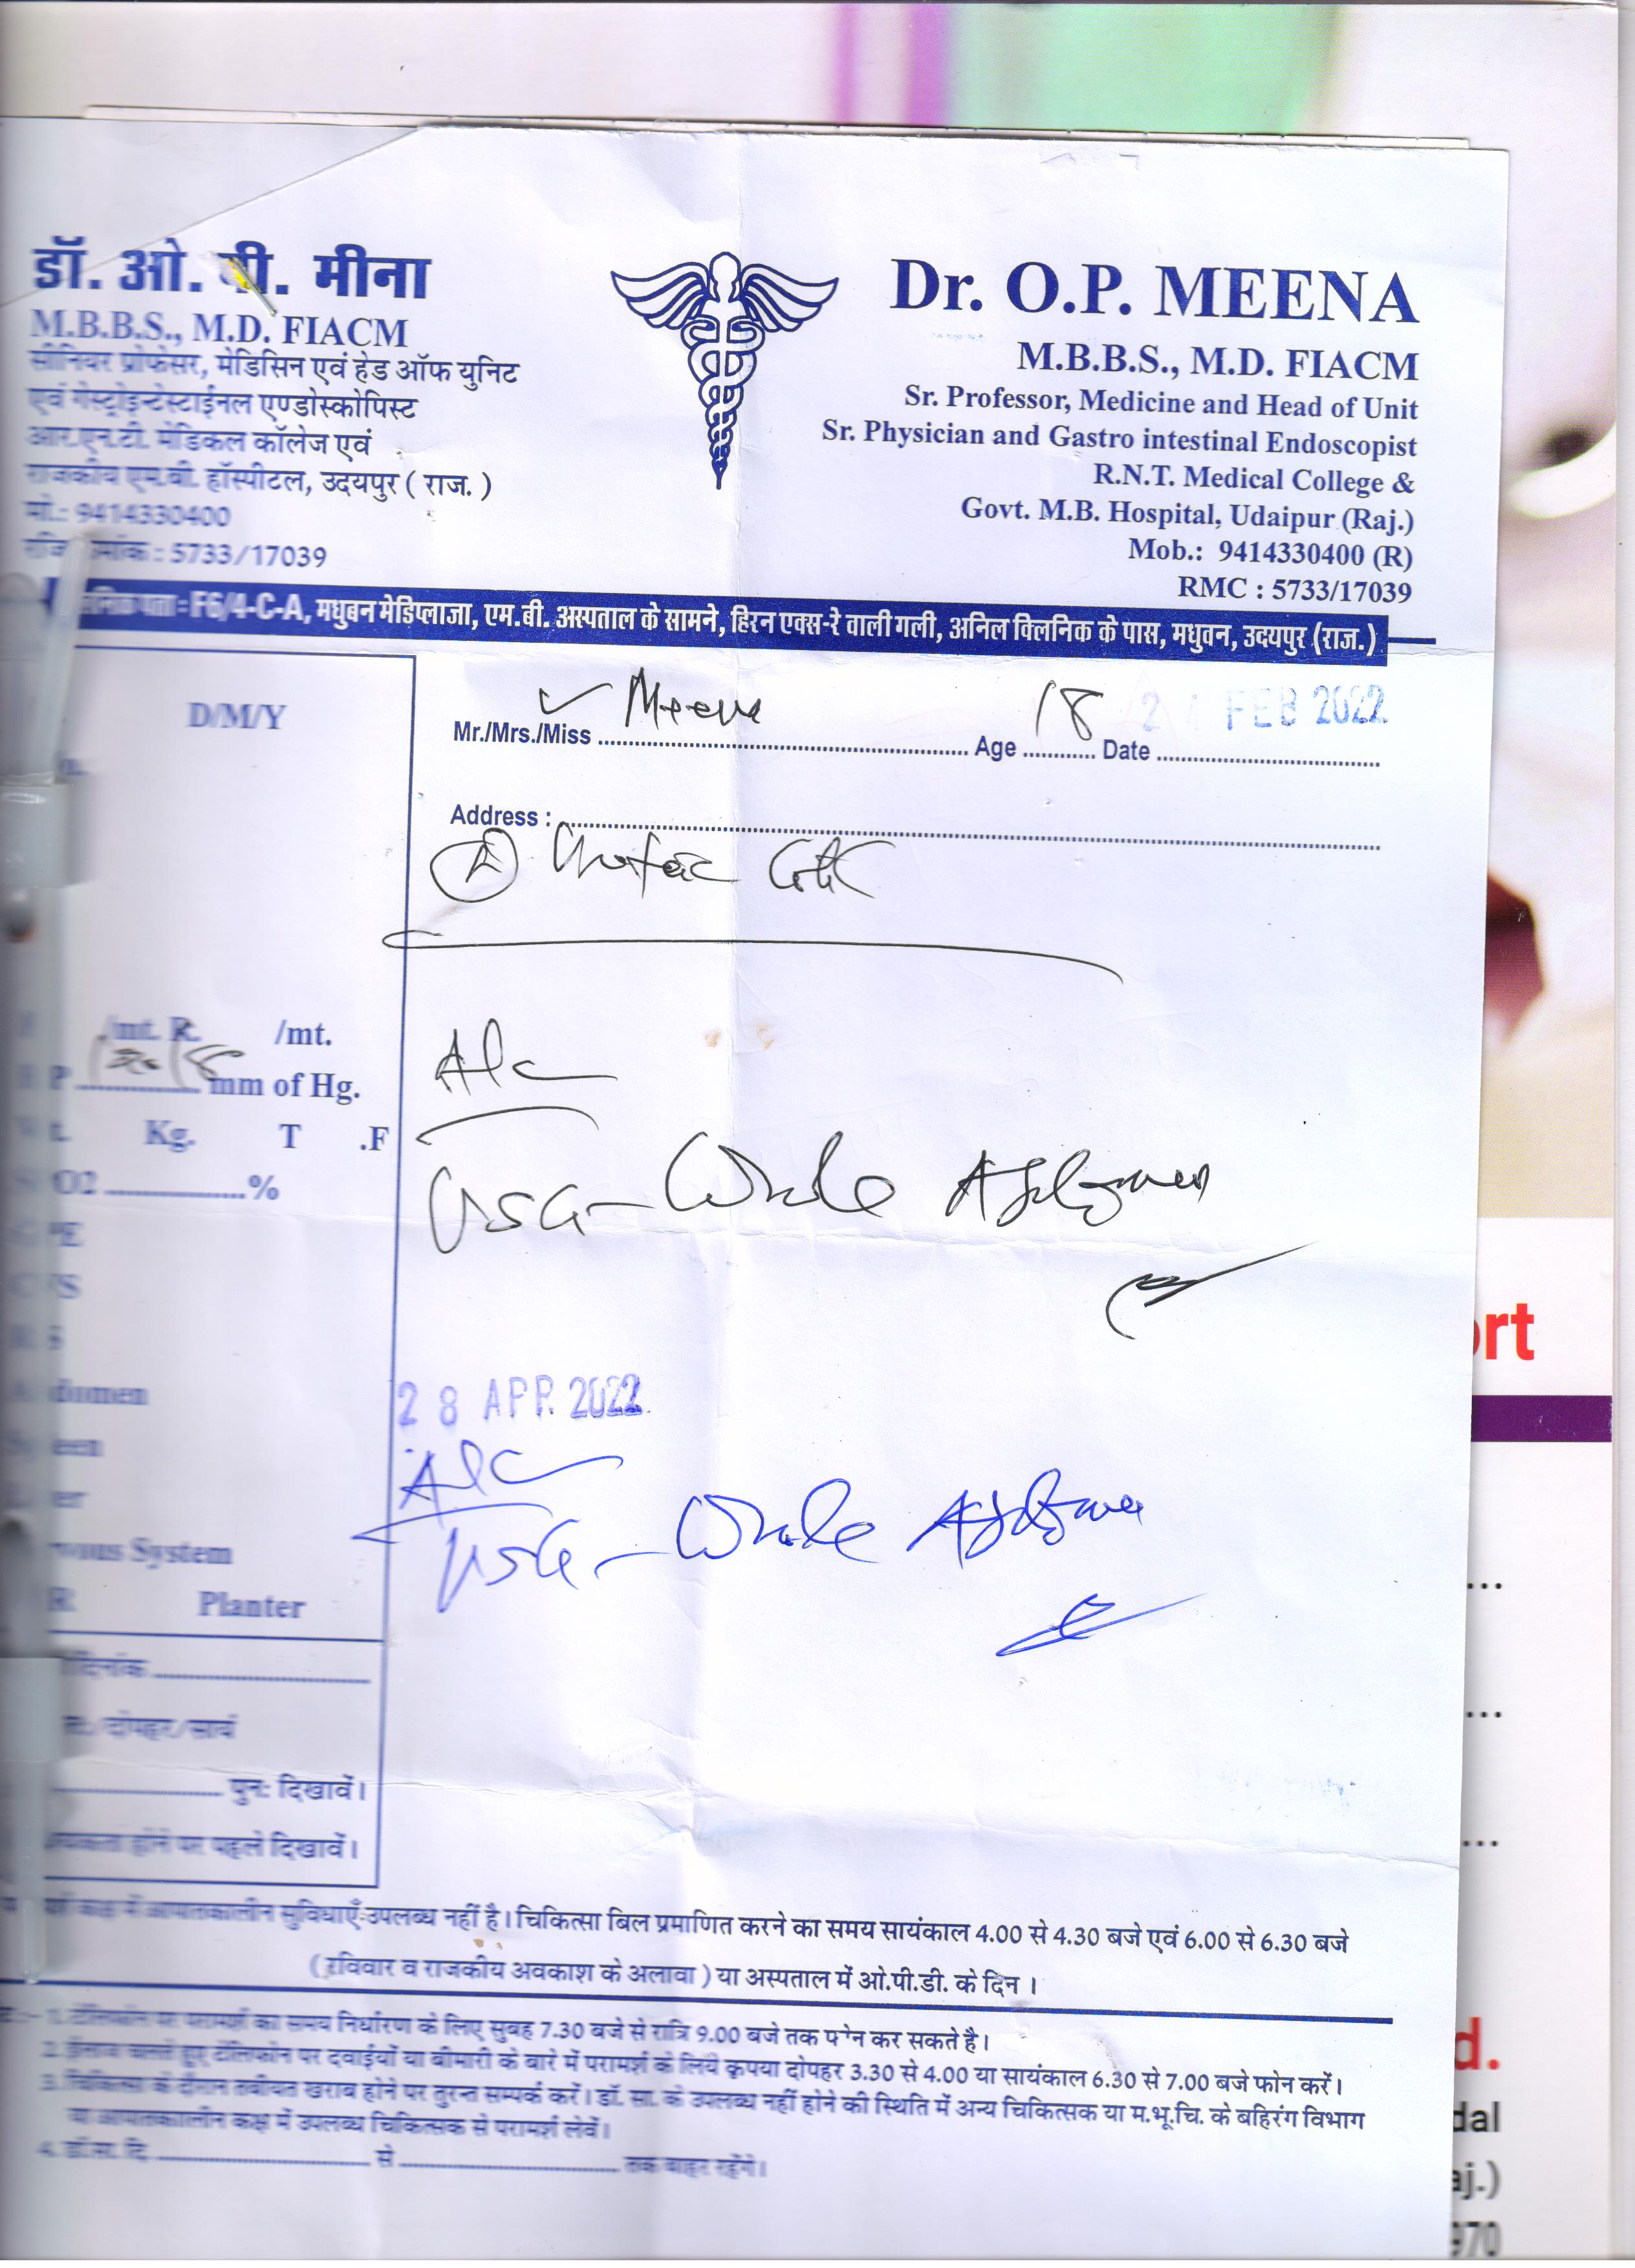 डॉ. ओ. पी. मीना
M.B.B.S., M.D. FIACM
सीनियर प्रोफेसर, मेडिसिन एवं हेड ऑफ युनिट
एवं गेस्ट्रोइन्टेस्टाईनल एण्डोस्कोपिस्ट
आर.एन.टी. मेडिकल कॉलेज एवं
राजकीय एम.बी. हॉस्पीटल, उदयपुर ( राज. )
मो.: 9414330400
: 5733/17039
Dr. O.P. MEENA
M.B.B.S., M.D. FIACM
Sr. Professor, Medicine and Head of Unit
Sr. Physician and Gastro intestinal Endoscopist
R.N.T. Medical College &
Govt. M.B. Hospital, Udaipur (Raj.)
Mob.: 9414330400 (R)
RMC : 5733/17039
पता : F6/4-C-A, मधुबन मेडिप्लाजा, एम.बी. अस्पताल के सामने, हिरन एक्स-रे वाली गली, अनिल क्लिनिक के पास, मधुवन, उदयपुर (राज.)
D/M/Y
Mr./Mrs./Miss Age 18 Date FEB 2022
Address :
/mt. R. /mt.
mm of Hg.
Kg. T .F
%
USG - Whole Abdomen
28 APR 2022
USG - Whole Abdomen
Planter
दिनांक
/दोपहर/सायं
पुनः दिखावें।
होने पर पहले दिखावें।
में आपातकालीन सुविधाएँ उपलब्ध नहीं है। चिकित्सा बिल प्रमाणित करने का समय सायंकाल 4.00 से 4.30 बजे एवं 6.00 से 6.30 बजे
( रविवार व राजकीय अवकाश के अलावा ) या अस्पताल में ओ.पी.डी. के दिन ।
1. टेलिफोन पर परामर्श का समय निर्धारण के लिए सुबह 7.30 बजे से रात्रि 9.00 बजे तक कर सकते है।
2. ईलाज चलते हुए टेलिफोन पर दवाईयों या बीमारी के बारे में परामर्श के लिये कृपया दोपहर 3.30 से 4.00 या सायंकाल 6.30 से 7.00 बजे फोन करें।
3. चिकित्सा के दौरान तबीयत खराब होने पर तुरन्त सम्पर्क करें। डॉ. सा. के उपलब्ध नहीं होने की स्थिति में अन्य चिकित्सक या म.भू.चि. के बहिरंग विभाग
या आपातकालीन कक्ष में उपलब्ध चिकित्सक से परामर्श लेवें।
4. डॉ.सा. दि. से तक बाहर रहेंगे।